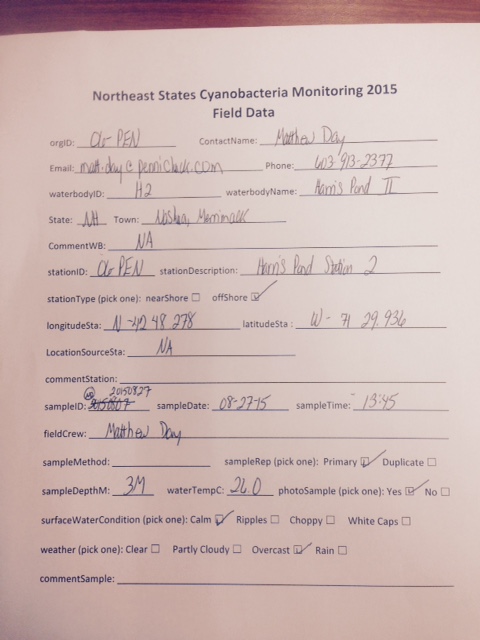 Northeast States Cyanobacteria Monitoring 2015
Field Data
orgID: CL-PEN ContactName: Matthew Day
Email: matt.day@pennichuck.com Phone: 603-913-2377
waterbodyID: H2 waterbodyName: Harris Pond II
State: NH Town: Nashua, Merrimack
CommentWB: NA
stationID: CL-PEN stationDescription: Harris Pond Station 2
stationType (pick one): nearShore ☐ offShore ☑
longitudeSta: N -42 48.278 latitudeSta : W - 71 29.936
LocationSourceSta: NA
commentStation:
MD 20150827
sampleID: 20150807 sampleDate: 08-27-15 sampleTime: 13:45
fieldCrew: Matthew Day
sampleMethod: sampleRep (pick one): Primary ☑ Duplicate ☐
sampleDepthM: 3M waterTempC: 26.0 photoSample (pick one): Yes ☑ No ☐
surfaceWaterCondition (pick one): Calm ☑ Ripples ☐ Choppy ☐ White Caps ☐
weather (pick one): Clear ☐ Partly Cloudy ☐ Overcast ☑ Rain ☐
commentSample: